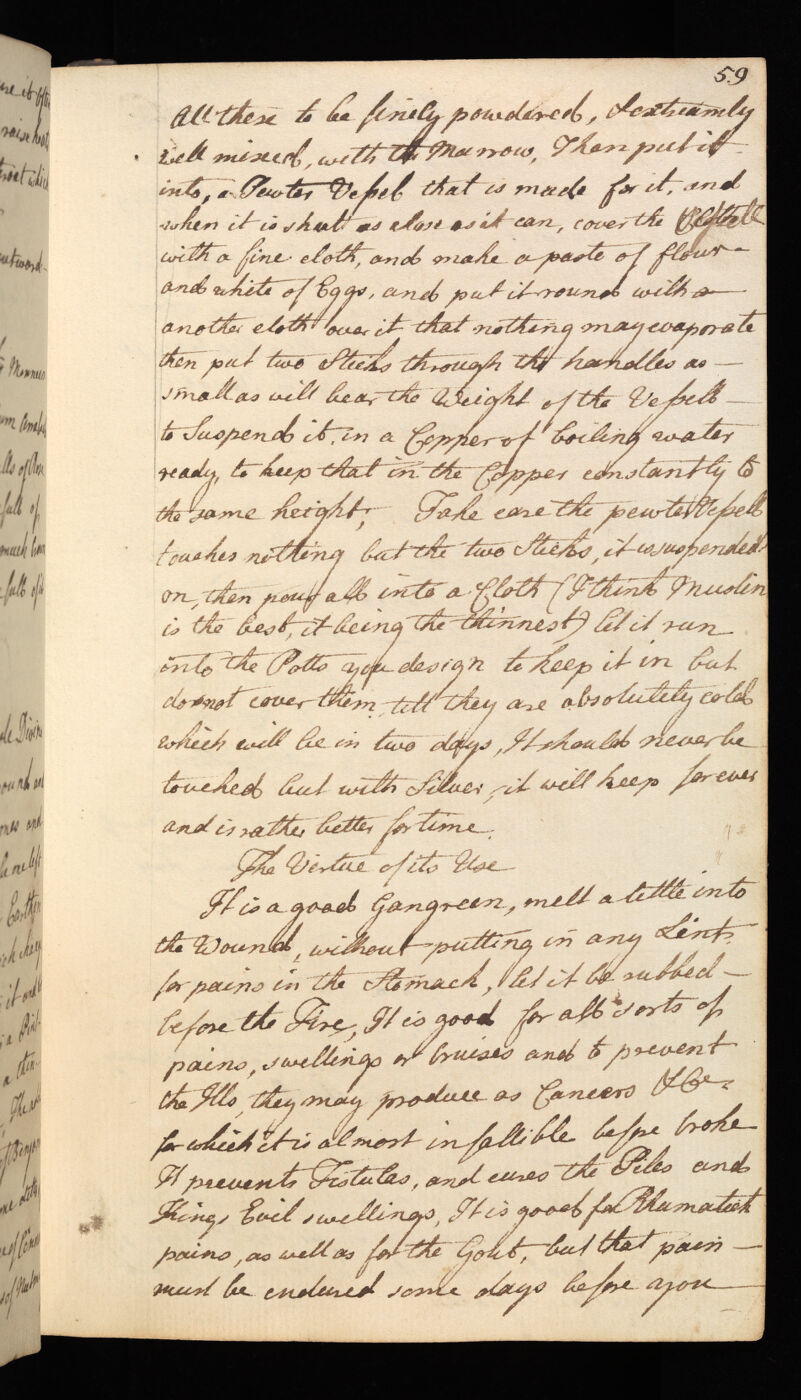 59
All these to be finely powdered, & extreamly
well mixed, with the Marrow, Then put it
into, a Pewter Vessel that is made for it, and
when it is shut as close as it can, cover the Vessell
with a fine cloth, and make a paste of flour -
and white of Eggs, and put it round with a
another cloth over it that nothing may evaporate
then put two Sticks through the handles as -
small as will bear the Weight of the Vessell -
to Suspend it, in a Copper of boiling water
ready, to keep that in the Copper constantly to
the same height; Take care the pewter Vessell
touches nothing but the two Sticks, it is suspended
on, then pour all into a Cloth (I think Muslin
is the best, it being the thinnest) let it run
into the Potts you design to keep it in but
do not cover them till they are absolutely cold
which will be in two days, It should never be
touched but with Silver, it will keep for ever
and is rather better for time.
The Virtue of its Use
It is a good Gangreen, melt a little into
the Wound, without putting in any Lint.
for pains in the Stomack, let it be rubbed -
before the Fire, It is good for all sorts of
pains, swellings or bruises and to prevent
the Ills, they may produce as Cancers &c -
for which it is almost infallible before broke
It prevents Fistulas, and cures the Piles and
Kings Evil swellings, It is good for Rhumatick
pains, as well as for the Gout, but that pain -
must be endured some days before you